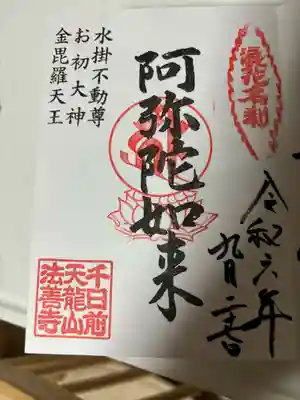 浪花名刹
令和六年
九月二十二日
阿弥陀如来
水掛不動尊
お初大神
金毘羅天王
千日前
天龍山
法善寺